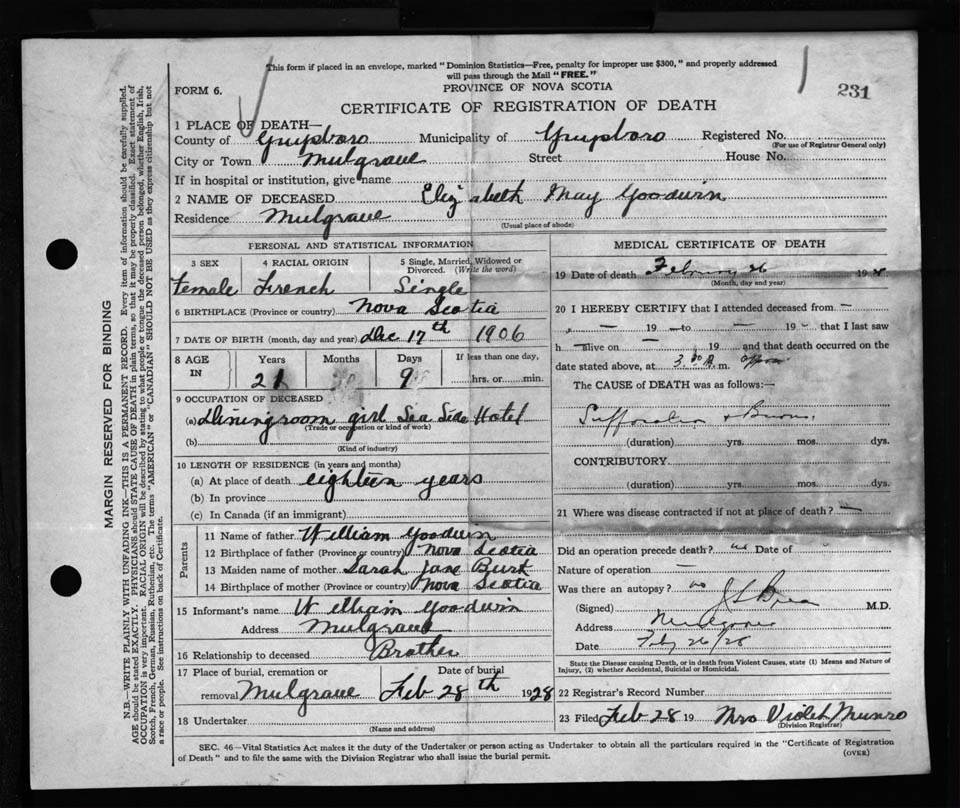 This form if placed in an envelope, marked "Dominion Statistics—Free, penalty for improper use $300," and properly addressed
will pass through the Mail "FREE."
PROVINCE OF NOVA SCOTIA
FORM 6.
231
CERTIFICATE OF REGISTRATION OF DEATH
1 PLACE OF DEATH—
County of Guysboro Municipality of Guysboro Registered No.
(For use of Registrar General only)
City or Town Mulgrave Street House No.
If in hospital or institution, give name
2 NAME OF DECEASED Elizabeth May Goodwin
Residence Mulgrave
(Usual place of abode)
PERSONAL AND STATISTICAL INFORMATION
3 SEX 4 RACIAL ORIGIN 5 Single, Married, Widowed or Divorced. (Write the word)
Female French Single
6 BIRTHPLACE (Province or country) Nova Scotia
7 DATE OF BIRTH (month, day and year) Dec 17th 1906
8 AGE IN Years Months Days If less than one day,
21 9 hrs. or min.
9 OCCUPATION OF DECEASED
(a) Diningroom girl Sea Side Hotel
(Trade or occupation or kind of work)
(b)
(Kind of industry)
10 LENGTH OF RESIDENCE (in years and months)
(a) At place of death eighteen years
(b) In province
(c) In Canada (if an immigrant)
Parents
11 Name of father William Goodwin
12 Birthplace of father (Province or country) Nova Scotia
13 Maiden name of mother Sarah Jane Burk
14 Birthplace of mother (Province or country) Nova Scotia
15 Informant's name William Goodwin
Address Mulgrave
16 Relationship to deceased Brother
17 Place of burial, cremation or Date of burial
removal Mulgrave Feb 28th 1928
18 Undertaker
(Name and address)
MEDICAL CERTIFICATE OF DEATH
19 Date of death February 26 192
(Month, day and year)
20 I HEREBY CERTIFY that I attended deceased from —
— 19 — to — 19 — that I last saw
h — alive on 19 and that death occurred on the
date stated above, at 3.00 A. m.
The CAUSE of DEATH was as follows:—
Suffocation & Burns
(duration) yrs. mos. dys.
CONTRIBUTORY
(duration) yrs. mos. dys.
21 Where was disease contracted if not at place of death? —
Did an operation precede death? no Date of -
Nature of operation —
Was there an autopsy? no
(Signed) M.D.
Address Mulgrave
Date Feby 26/28
State the Disease causing Death, or in death from Violent Causes, state (1) Means and Nature of
Injury, (2) whether Accidental, Suicidal or Homicidal.
22 Registrar's Record Number
23 Filed Feb 28 19 Mrs Violet Munro
(Division Registrar)
SEC. 46—Vital Statistics Act makes it the duty of the Undertaker or person acting as Undertaker to obtain all the particulars required in the "Certificate of Registration
of Death" and to file the same with the Division Registrar who shall issue the burial permit.
(OVER)
MARGIN RESERVED FOR BINDING
N.B.—WRITE PLAINLY WITH UNFADING INK—THIS IS A PERMANENT RECORD. Every item of information should be carefully supplied.
AGE should be stated EXACTLY. PHYSICIANS should STATE CAUSE OF DEATH in plain terms, so that it may be properly classified. Exact statement of
OCCUPATION is very important. RACIAL ORIGIN will be described by stating to what people or tongue the deceased person belonged, whether English, Irish,
Scotch, French, German, Russian, Ruthenian, etc. The terms "AMERICAN" or "CANADIAN" SHOULD NOT BE USED as they express citizenship but not
a race or people. See instructions on back of Certificate.